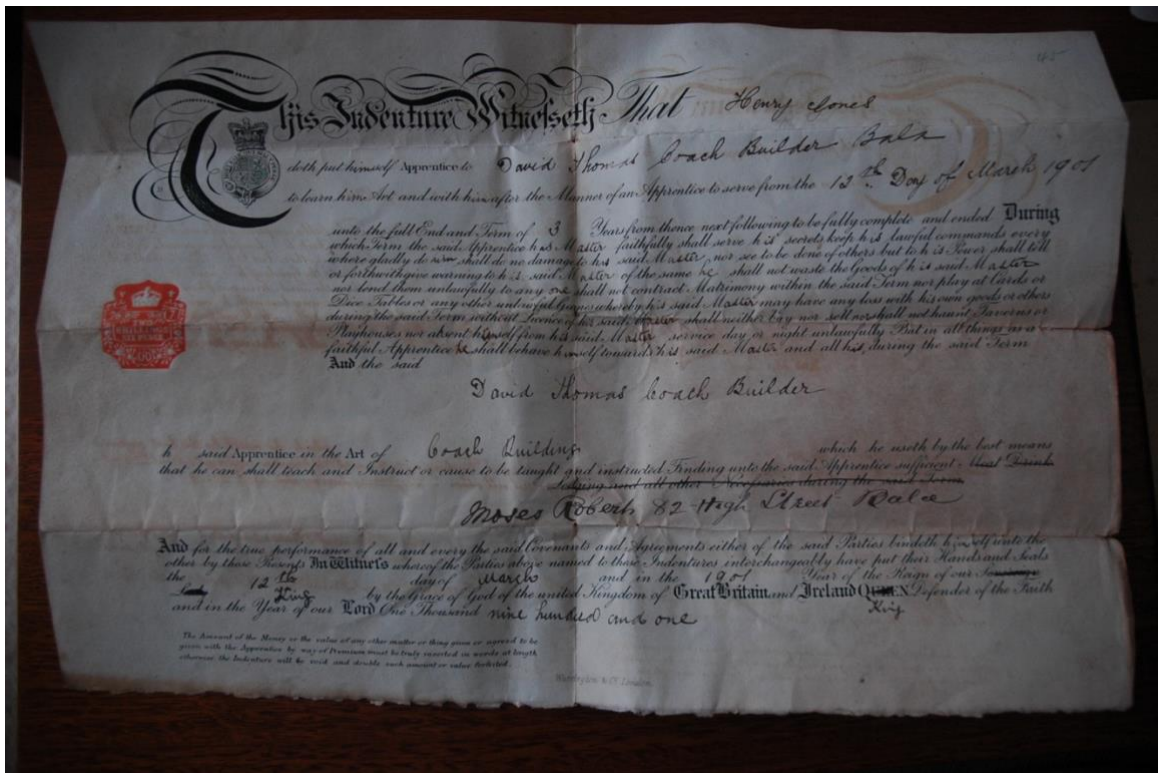 This Indenture Witnesseth That Henry Jones
doth put himself Apprentice to David Thomas Coach Builder Bala
to learn his Art and with him after the Manner of an Apprentice to serve from the 12th Day of March 1901
unto the full End and Term of 3 Years from thence next following to be fully complete and ended During
which Term the said Apprentice his Master faithfully shall serve his secrets keep his lawful commands every
where gladly do he shall do no damage to his said Master nor see to be done of others but to his Power shall tell
or forthwith give warning to his said Master of the same he shall not waste the Goods of his said Master
nor lend them unlawfully to any one shall not contract Matrimony within the said Term nor play at Cards or
Dice Tables or any other unlawful Games whereby his said Master may have any loss with his own goods or others
during the said Term without Licence of his said Master shall neither buy nor sell nor shall not haunt Taverns or
Playhouses nor absent himself from his said Master service day or night unlawfully But in all things as a
faithful Apprentice he shall behave himself towards his said Master and all his during the said Term
And the said
David Thomas Coach Builder
h said Apprentice in the Art of Coach Building which he useth by the best means
that he can shall teach and Instruct or cause to be taught and instructed Finding unto the said Apprentice sufficient Meat Drink
Lodging and all other Necessaries during the said Term
Moses Roberts 82 High Street Bala
And for the true performance of all and every the said Covenants and Agreements either of the said Parties bindeth himself unto the
other by these Presents In Witness whereof the Parties above named to these Indentures interchangeably have put their Hands and Seals
the 12th day of March and in the 1901 Year of the Reign of our Sovereign
King by the Grace of God of the united Kingdom of Great Britain and Ireland QUEEN Defender of the Faith
King
and in the Year of our Lord One Thousand nine hundred and one
The Amount of the Money or the value of any other matter or thing given or agreed to be
given with the Apprentice by way of Premium must be truly inserted in words at length
otherwise the Indenture will be void and double such amount or value forfeited.